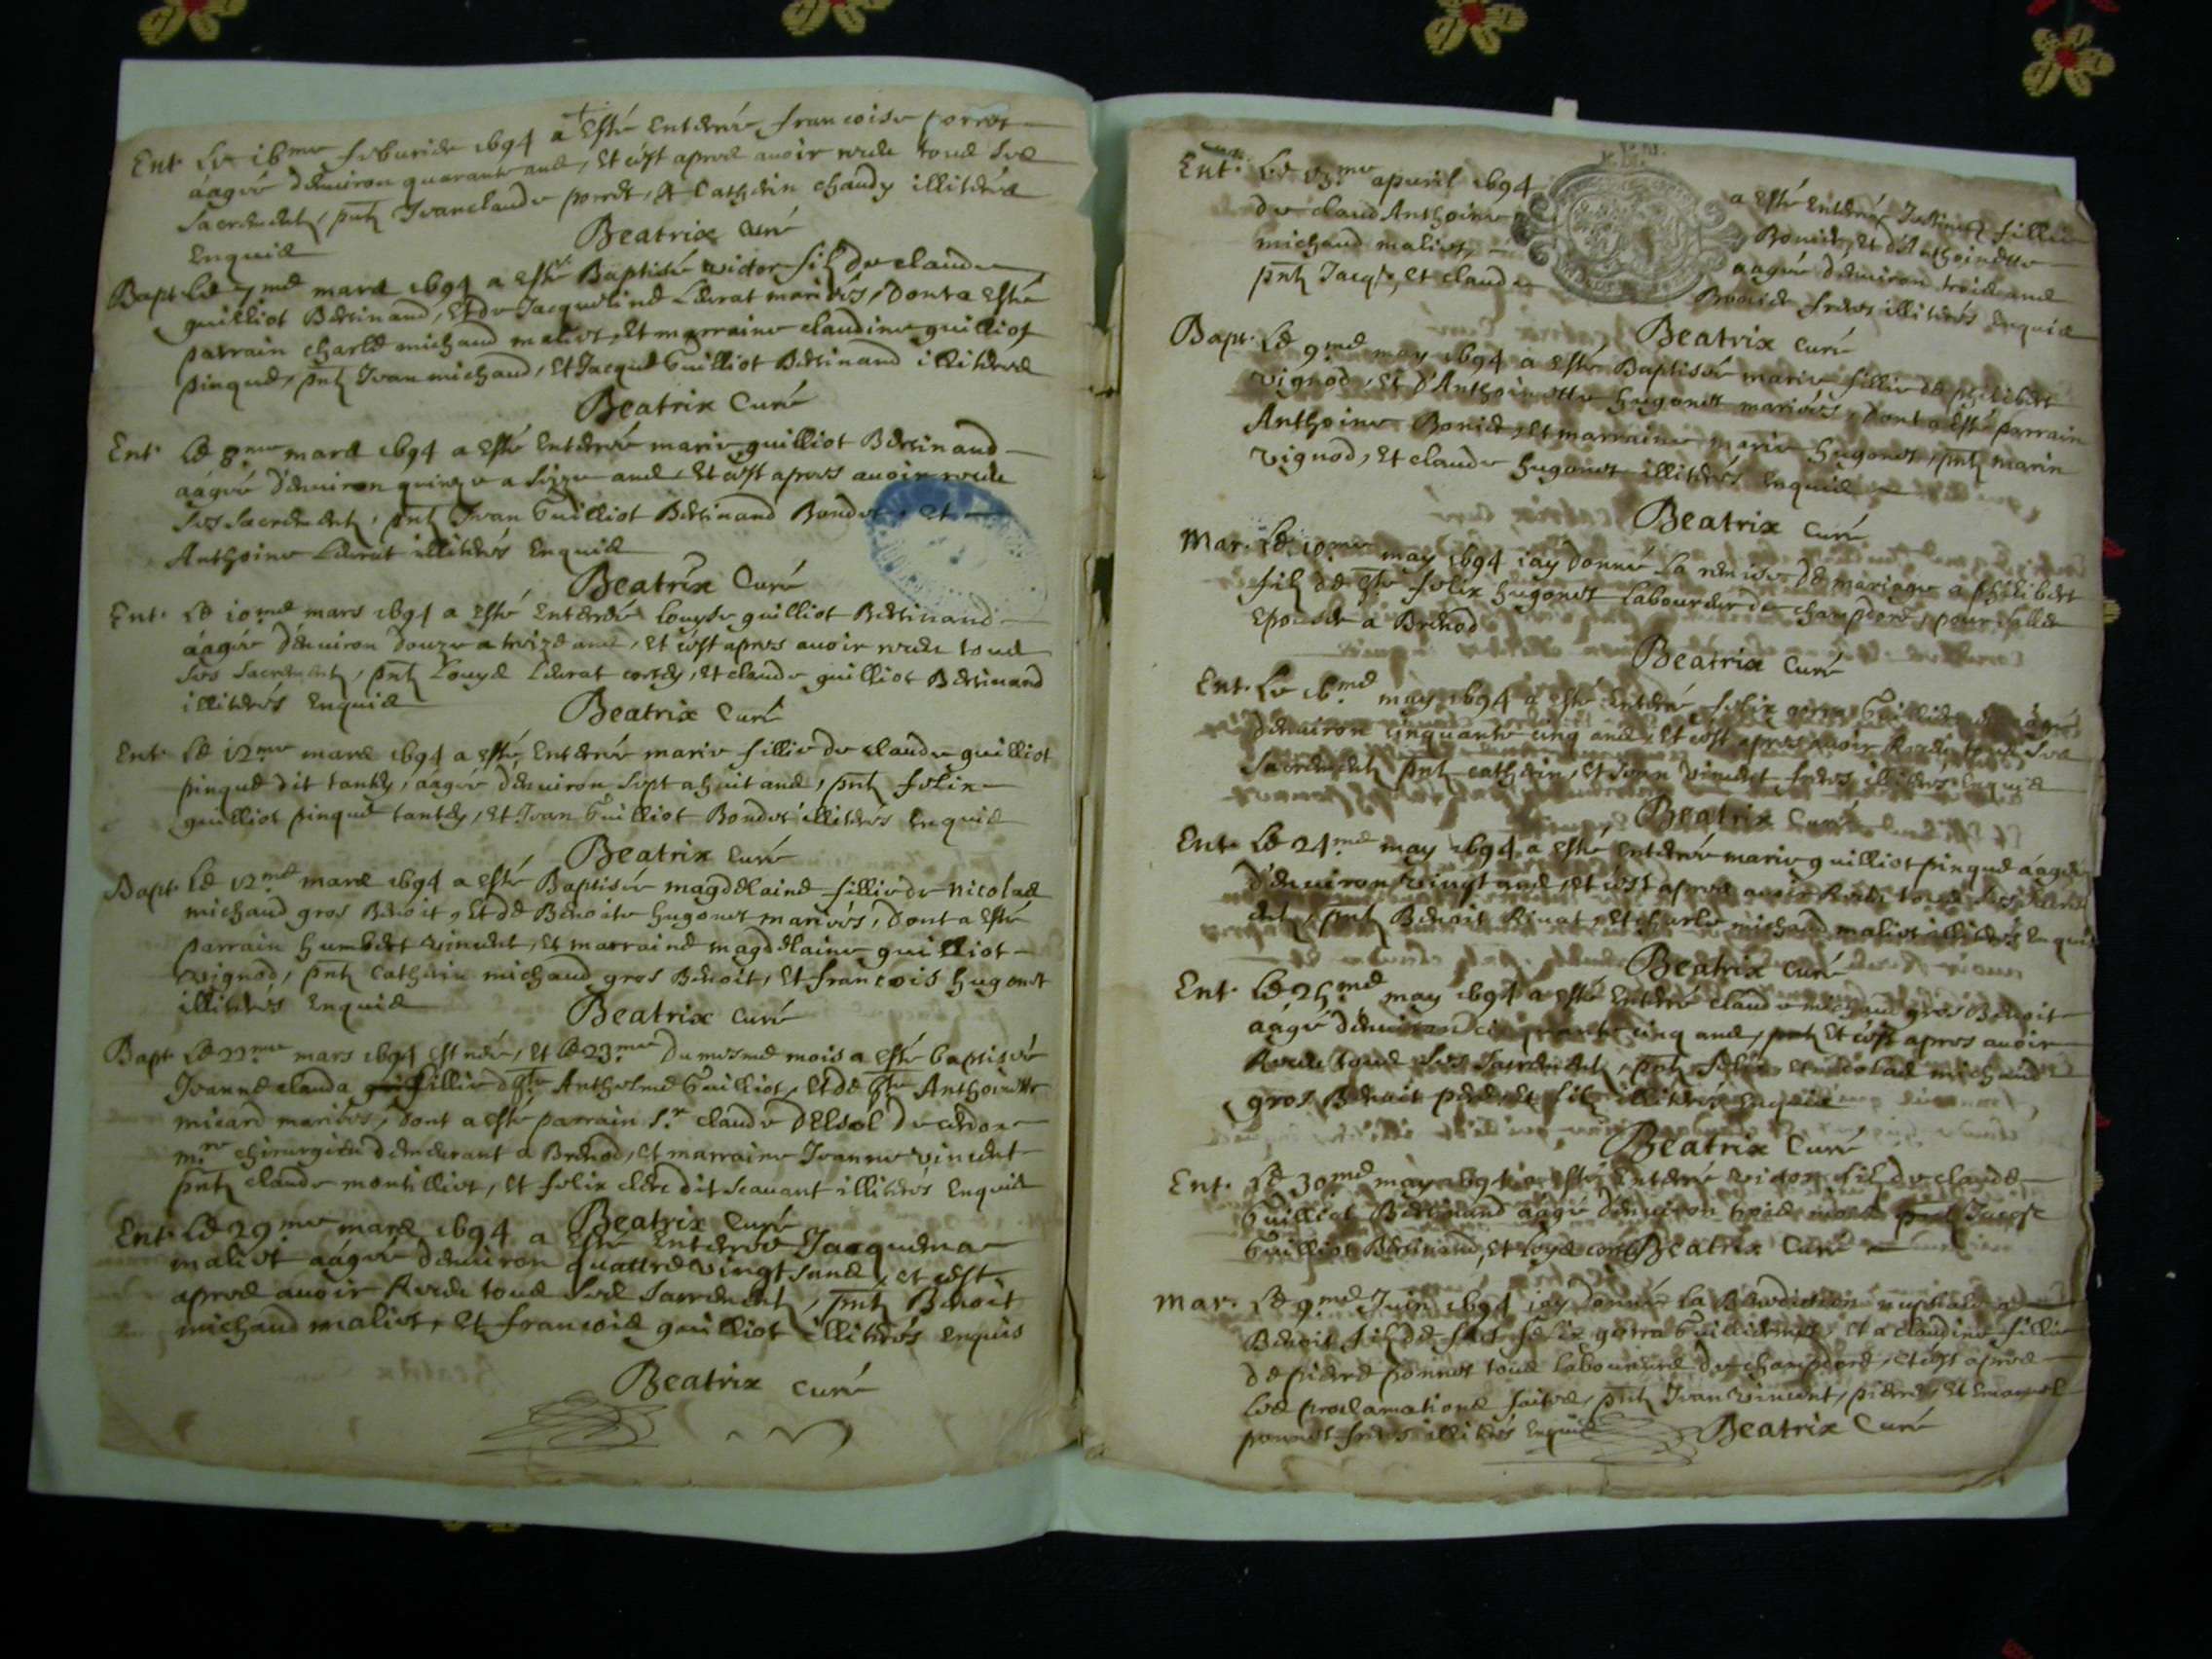 Ent. Le 16me feburier 1694 a esté enterrée francoise porret
áagée d'enuiron quarante ans, et c'est apres auoir receu tous ses
sacrements, pnts Jean claude porret, et Cathelin chaudy illiterés
enquis
Beatrix curé
Bapt. Le 7me mars 1694 a esté Baptisé victor fils de claude
guilliot Bertinand, et de Jacqueline Leurat mariés, dont a esté
parrain charle michaud maliet, et marraine claudine guilliot
pinque, pnts Jean michaud, et Jacque Guilliot Bertinand illiteres
Beatrix Curé
Ent. Le 8me mars 1694 a esté enterrée marie guilliot Bertinand
áagée d'enuiron quinze a seize ans, et c'est apres auoir receu
ses sacrements, pnts Jean Guilliot Bertinand Bondet, et
Anthoine Leurat illiterés enquis
Beatrix Curé
Ent. Le 10me mars 1694 a esté enterrée Louyse guilliot Bertinand
áagée d'enuiron douze a treize ans, et c'est apres auoir receu tous
ses sacrements, pnts Louys Leurat, et claude guilliot Bertinand
illiterés enquis
Beatrix Curé
Ent. Le 12me mars 1694 a esté enterrée marie fillie de claude guilliot
pinque dit tantey, áagée d'enuiron sept a huit ans, pnts felix
guilliot pinque tantey, et Jean Guilliot Bondet illiterés enquis
Beatrix curé
Bapt. Le 12me mars 1694 a esté Baptisée magdelaine fillie de nicolas
michaud gros Benoit, et de Benoite hugonet mariés, dont a esté
parrain humbert vincent, et marraine magdelaine guilliot
vignod, pnts Cathelin michaud gros Benoit, et francois hugonet
illiterés enquis
Beatrix curé
Bapt. Le 22me mars 1694 est née, et le 23me du mesme mois a esté baptisée
Jeanne clauda fillie d'hste Anthelme Guilliot, et de hste Anthoinette
micard mariés, dont a esté parrain Sr claude Delsol
mre chirurgien demeurant a Brenod, et marraine Jeanne vincent
pnts claude montilliet, et felix clerc dit scauant illiteres enquis
Beatrix Curé
Ent. Le 29me mars 1694 a esté enterrée Jacquema
maliet áagée d'enuiron quattre vingt sans, et c'est
apres auoir Receu tous ses sacrements, pnts Benoit
michaud maliet, et francois guilliot illiterés enquis
Beatrix curé
Ent. Le 03me apuril 1694 a esté enterrée fillie
de claud Anthoine Bonier, et d'Anthoinette
michaud maliet, aagée d'enuiron trois ans
pnts Jacqs, et claude Bonier freres illiterés enquis
Beatrix curé
Bapt. Le 9me may 1694 a esté Baptisée marie fillie de philibert
vignod, et d'Anthoinette hugonet mariés, dont a esté parrain
Anthoine Bonier, et marraine marie hugonet, pnts marin
vignod, et claude hugonet illiterés enquis
Beatrix Curé
Mar. Le 10me may 1694 iáy donné la remise de mariage a philibert
fils de hste felix hugonet laboureur de champdore, pour aller
epouser a Brenod
Beatrix Curé
Ent. Le 16me may 1694 a esté enterré felix
d'enuiron cinquante cinq ans, et c'est apres auoir Receu tous ses
sacrements pnts cathelin, et vincent freres illiteres enquis
Beatrix Curé
Ent. Le 24me may 1694 a esté enterrée marie guilliot pinque áagée
d'enuiron vingt ans, et c'est apres auoir Receu tous ses sacrem
ents, pnts Benoit Riuat, et charle michaud maliet illiterés enquis
Beatrix Curé
Ent. Le 25me may 1694 a esté enterré claude michaud gros Benoit
aágé d'enuiron cinquante cinq ans, et c'est apres auoir
Receu tous ses sacrements, pnts felix et nicolas michaud
gros Benoit pere, et fils illiterés enquis
Beatrix Curé
Ent. Le 30me may 1694 a esté enterré victor fils de claude
Guilliot Bertinand áagé d'enuiron trois mois Jacqse
Guilliot Bertinand, et Loys Beatrix Curé
Mar. Le 9me Juin 1694 iáy donné la Benediction nuptiale a
Benoit fils de feu felix guerra, et a claudine fillie
de pierre ponnet tous laboureurs de champdore, et c'est apres
les proclamations faites, pnts Jean vincent, pierre, et Emanuel
ponnet freres illiterés enquis Beatrix Curé